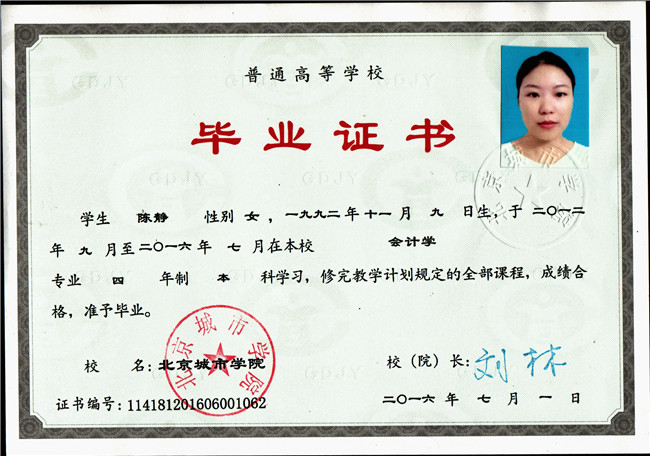 普通高等学校
毕业证书
学生 陈静 性别 女，一九九二年 十一 月 九 日生，于 二〇一二
年 九 月至二〇一六年 七 月在本校 会计学
专业 四 年制 本 科学习，修完教学计划规定的全部课程，成绩合
格，准予毕业。
校 名：北京城市学院
校（院）长：刘林
北京城市学院
证书编号：114181201606001062
二〇一六 年 七 月 一 日